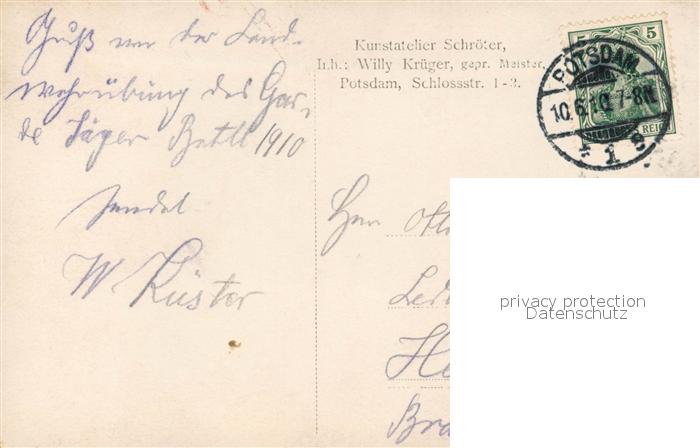 Gruß von der Land-
wehrübung des Gar-
de Jäger Batll 1910
sendet
W Küster
Kunstatelier Schröter,
Inh.: Willy Krüger, gepr. Meister,
Potsdam, Schlossstr. 1-3.
5 5
REICH
POTSDAM
10.6.10.7-8N.
* 1
Herrn
privacy protection
Datenschutz